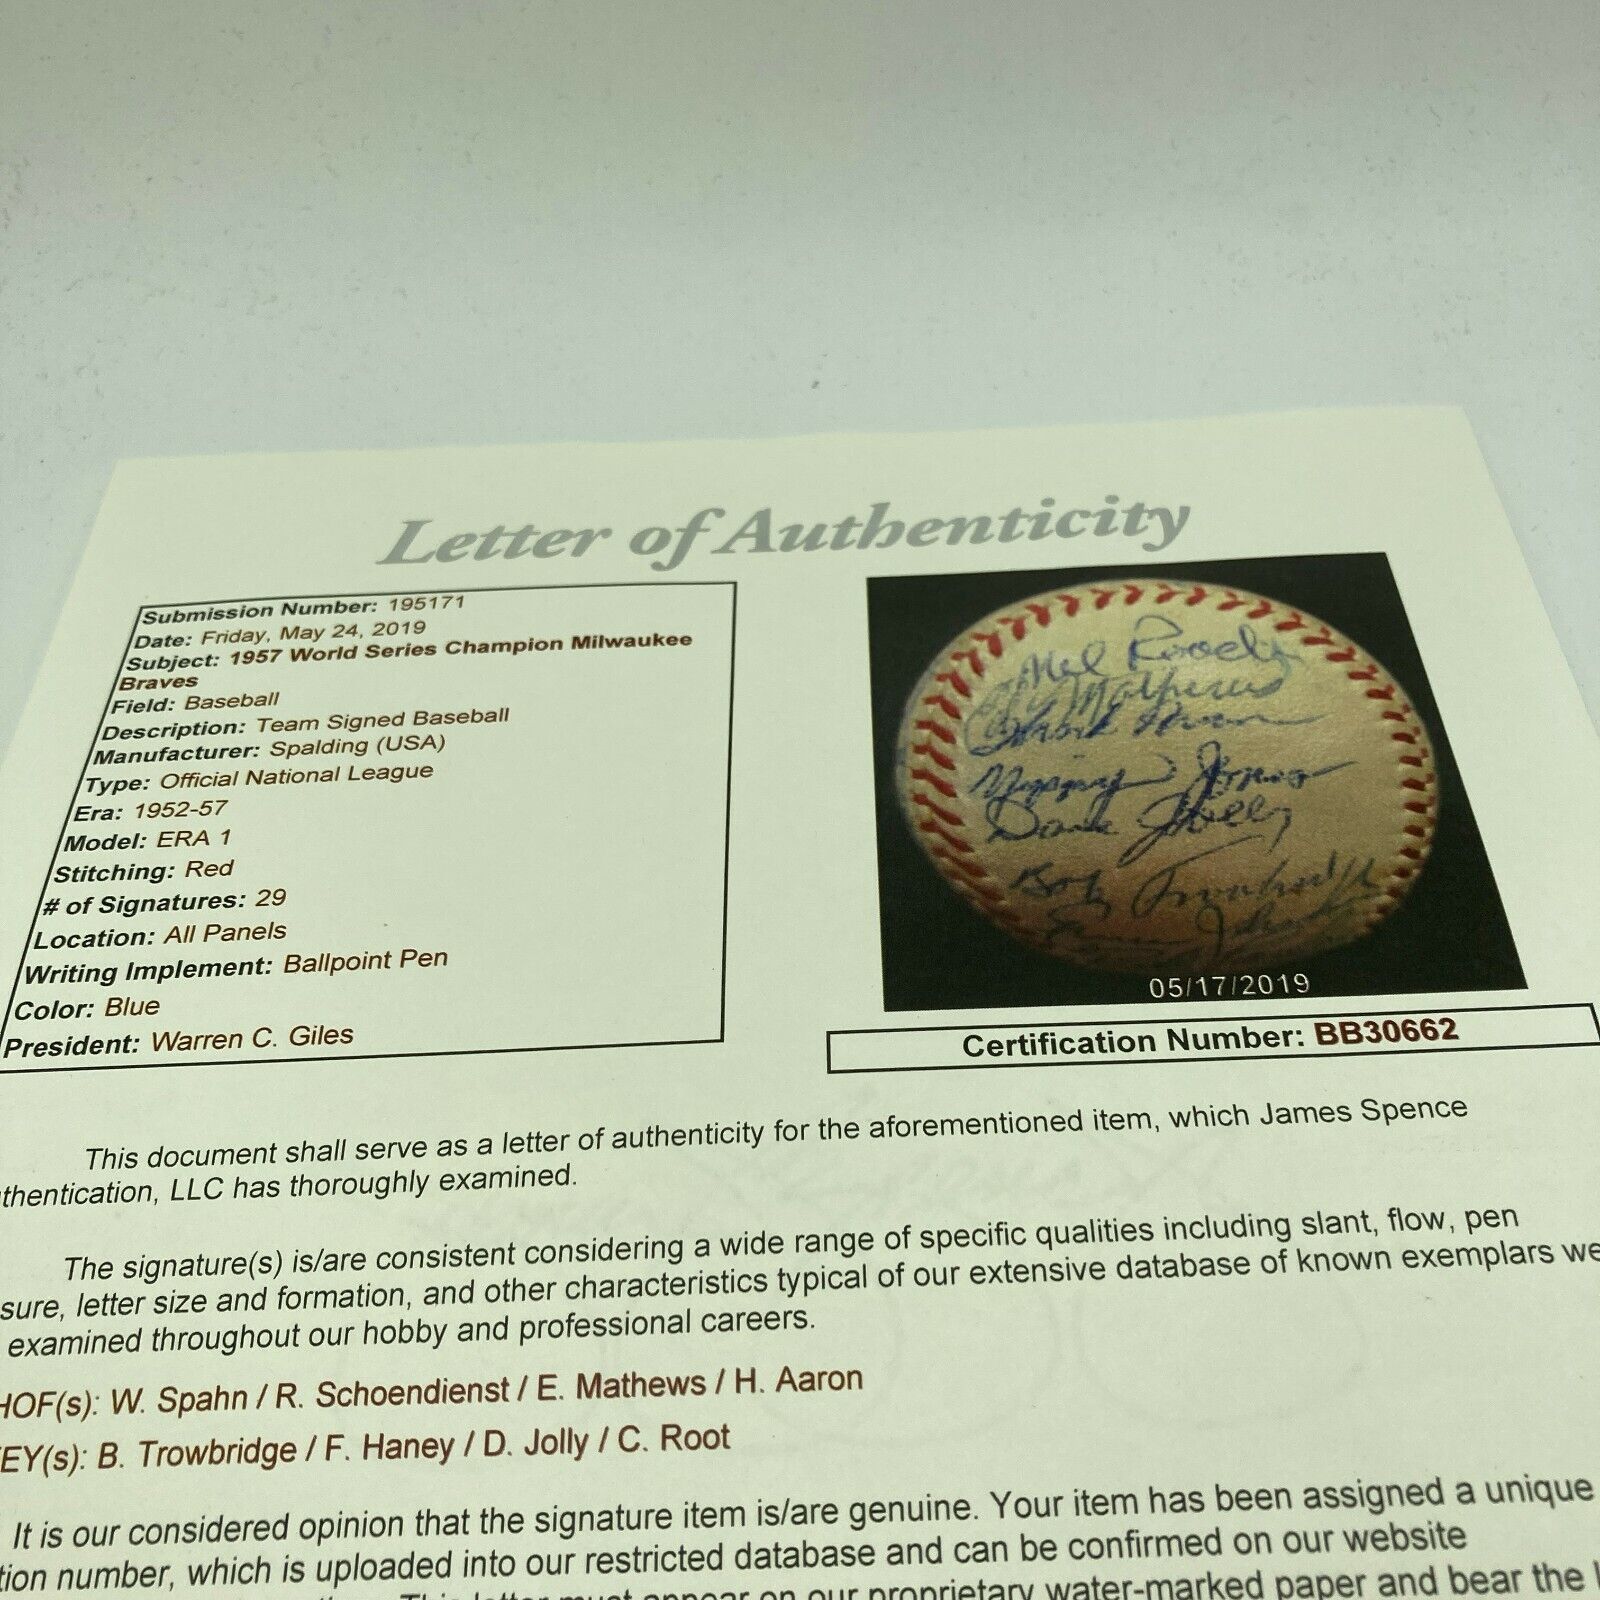 Letter of Authenticity
Submission Number: 195171
Date: Friday, May 24, 2019
Subject: 1957 World Series Champion Milwaukee
Braves
Field: Baseball
Description: Team Signed Baseball
Manufacturer: Spalding (USA)
Type: Official National League
Era: 1952-57
Model: ERA 1
Stitching: Red
# of Signatures: 29
Location: All Panels
Writing Implement: Ballpoint Pen
Color: Blue
President: Warren C. Giles
Mel Roach
Dave Jolly
Bob Trowbridge
05/17/2019
Certification Number: BB30662
This document shall serve as a letter of authenticity for the aforementioned item, which James Spence
thentication, LLC has thoroughly examined.
The signature(s) is/are consistent considering a wide range of specific qualities including slant, flow, pen
sure, letter size and formation, and other characteristics typical of our extensive database of known exemplars we
examined throughout our hobby and professional careers.
HOF(s): W. Spahn / R. Schoendienst / E. Mathews / H. Aaron
EY(s): B. Trowbridge / F. Haney / D. Jolly / C. Root
It is our considered opinion that the signature item is/are genuine. Your item has been assigned a unique
tion number, which is uploaded into our restricted database and can be confirmed on our website
This letter must appear on our proprietary water-marked paper and bear the